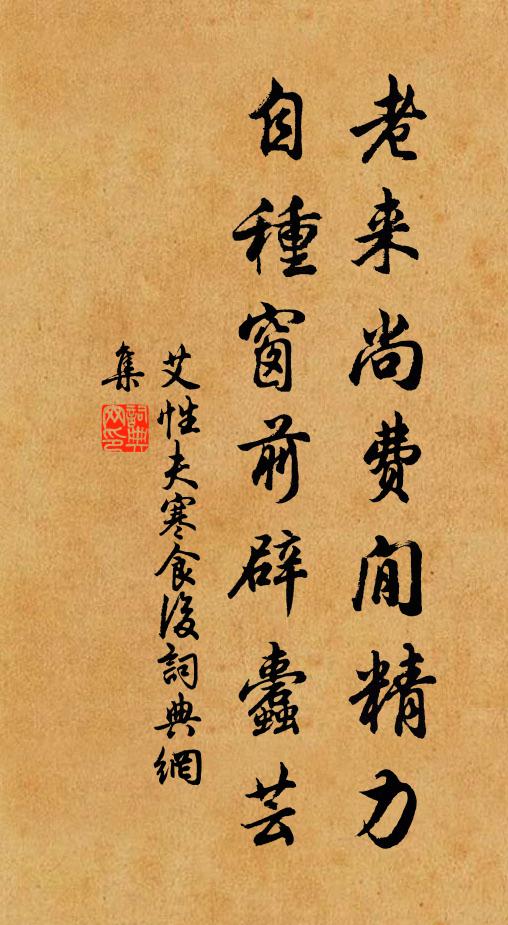 老来尚費閒精力
自種窗前辟蠹芸
艾性夫寒食後詞典網
集
詞典網印